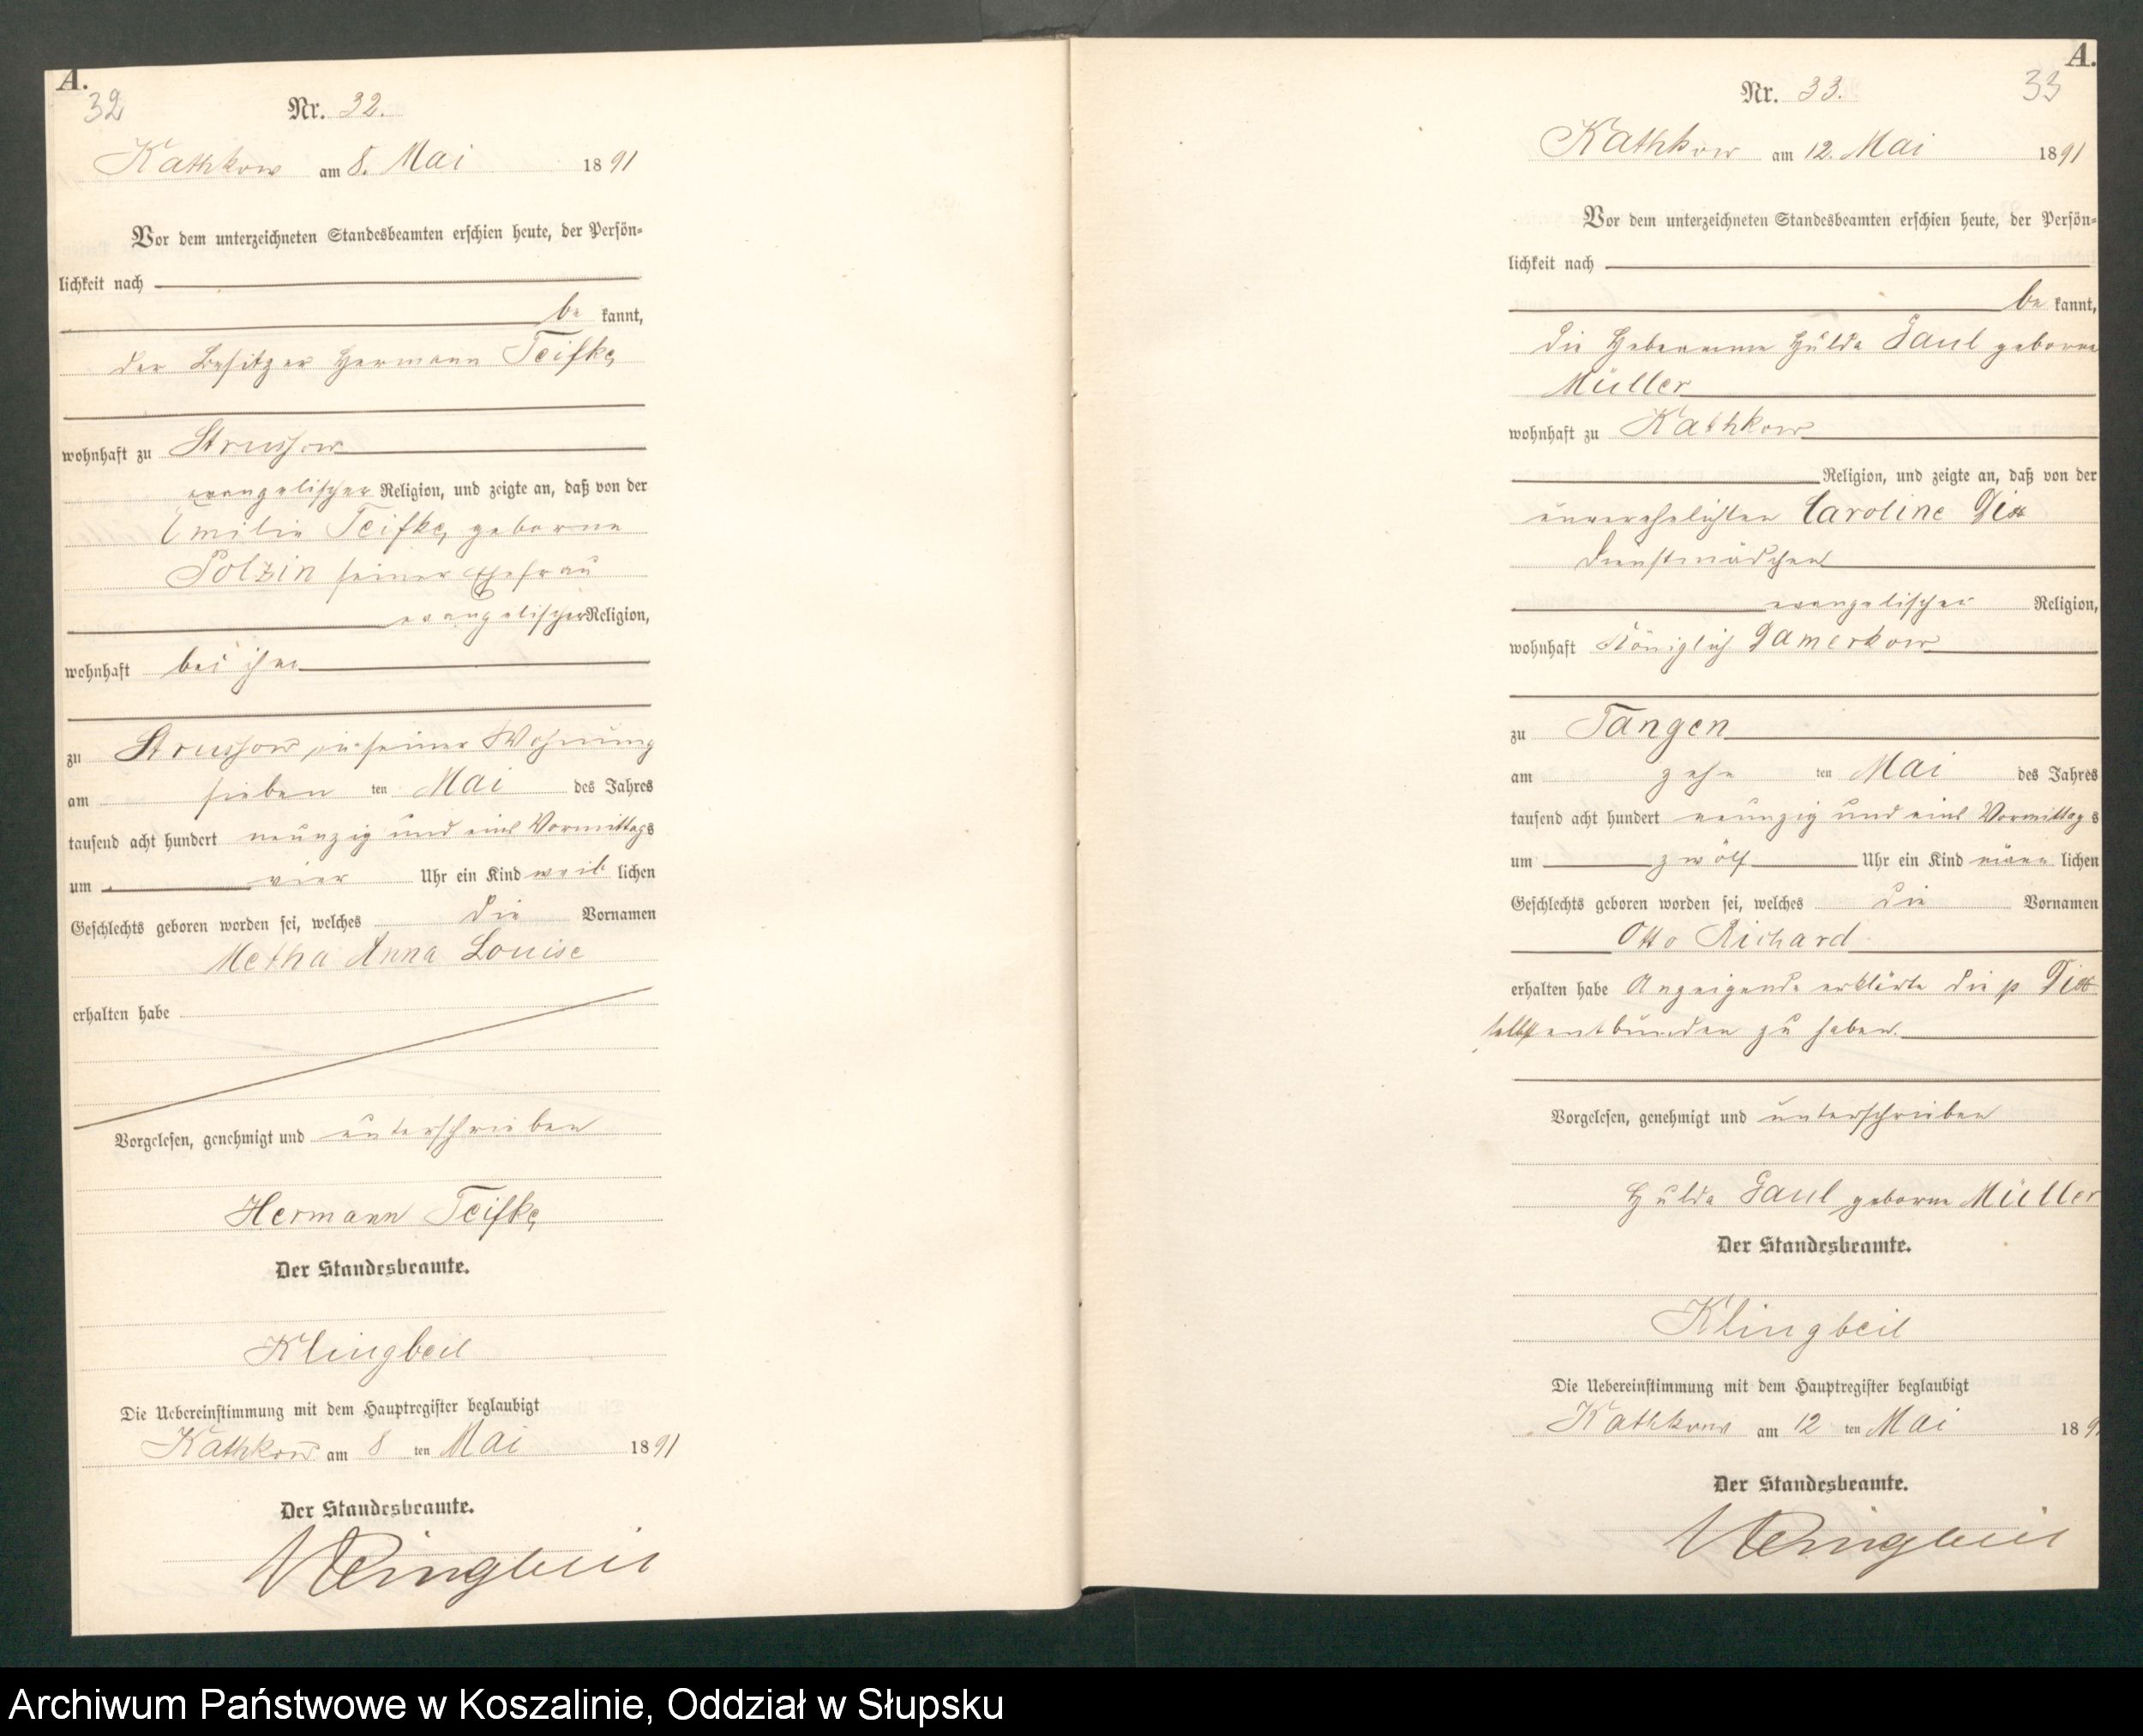 A.
32
Nr. 32.
Kathkow am 8. Mai 1891
Vor dem unterzeichneten Standesbeamten erschien heute, der Persön-
lichkeit nach
be kannt,
der Besitzer Hermann Teifke,
wohnhaft zu Strussow
evangelischer Religion, und zeigte an, daß von der
Emilie Teifke, geborne
Polzin seiner Ehefrau
evangelischer Religion,
wohnhaft bei ihm
zu Strussow, in seiner Wohnung
am sieben ten Mai des Jahres
tausend acht hundert neunzig und eins Vormittags
um vier Uhr ein Kind weib lichen
Geschlechts geboren worden sei, welches die Vornamen
Metha Anna Louise
erhalten habe
Vorgelesen, genehmigt und unterschrieben
Hermann Teifke,
Der Standesbeamte.
Klingbeil
Die Uebereinstimmung mit dem Hauptregister beglaubigt
Kathkow am 8 ten Mai 1891
Der Standesbeamte.
Klingbeil
A.
33
Nr. 33.
Kathkow am 12. Mai 1891
Vor dem unterzeichneten Standesbeamten erschien heute, der Persön-
lichkeit nach
be kannt,
die Hebeamme Hulda Gaul geborne
Müller
wohnhaft zu Kathkow
Religion, und zeigte an, daß von der
unverehelichten Caroline Ditt
Dienstmädchen
evangelischer Religion,
wohnhaft Königlich Damerkow
zu Tangen
am zehn ten Mai des Jahres
tausend acht hundert neunzig und eins Vormittags
um zwölf Uhr ein Kind männ lichen
Geschlechts geboren worden sei, welches die Vornamen
Otto Richard
erhalten habe Anzeigende erklärte die p Ditt
selbst entbunden zu haben.
Vorgelesen, genehmigt und unterschrieben
Hulda Gaul geborne Müller
Der Standesbeamte.
Klingbeil
Die Uebereinstimmung mit dem Hauptregister beglaubigt
Kathkow am 12 ten Mai 189
Der Standesbeamte.
Klingbeil
Archiwum Państwowe w Koszalinie, Oddział w Słupsku